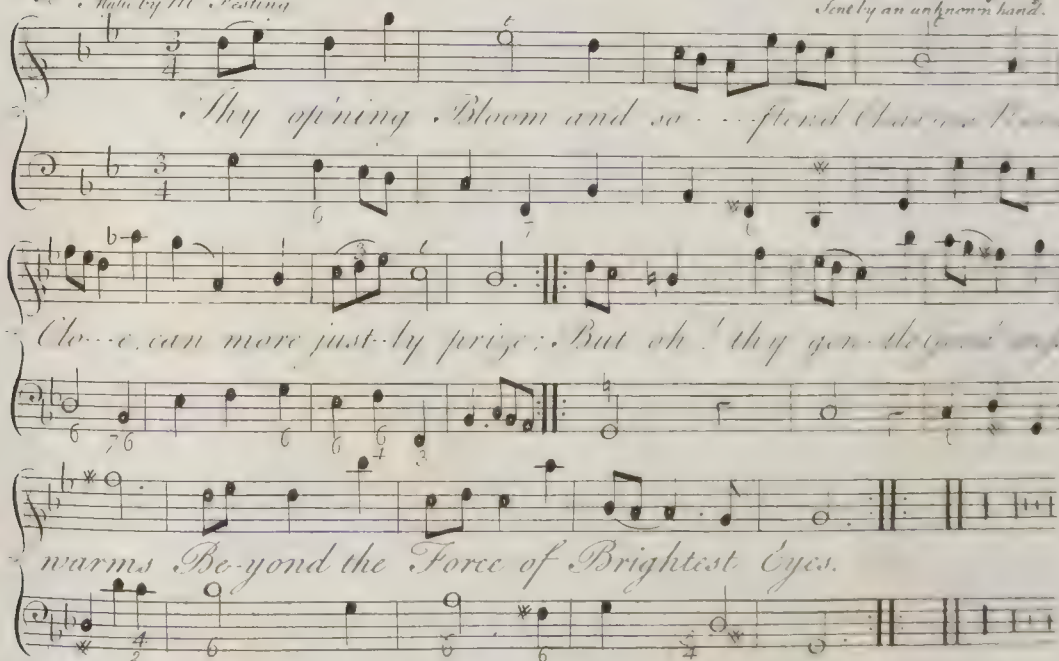 Musie by Mr. Festing
Sent by an unknown hand.
Thy op'ning Bloom and so
Clo---e can more just-ly prize; But oh! thy gen
warms Be-yond the Force of Brightest Eyes.